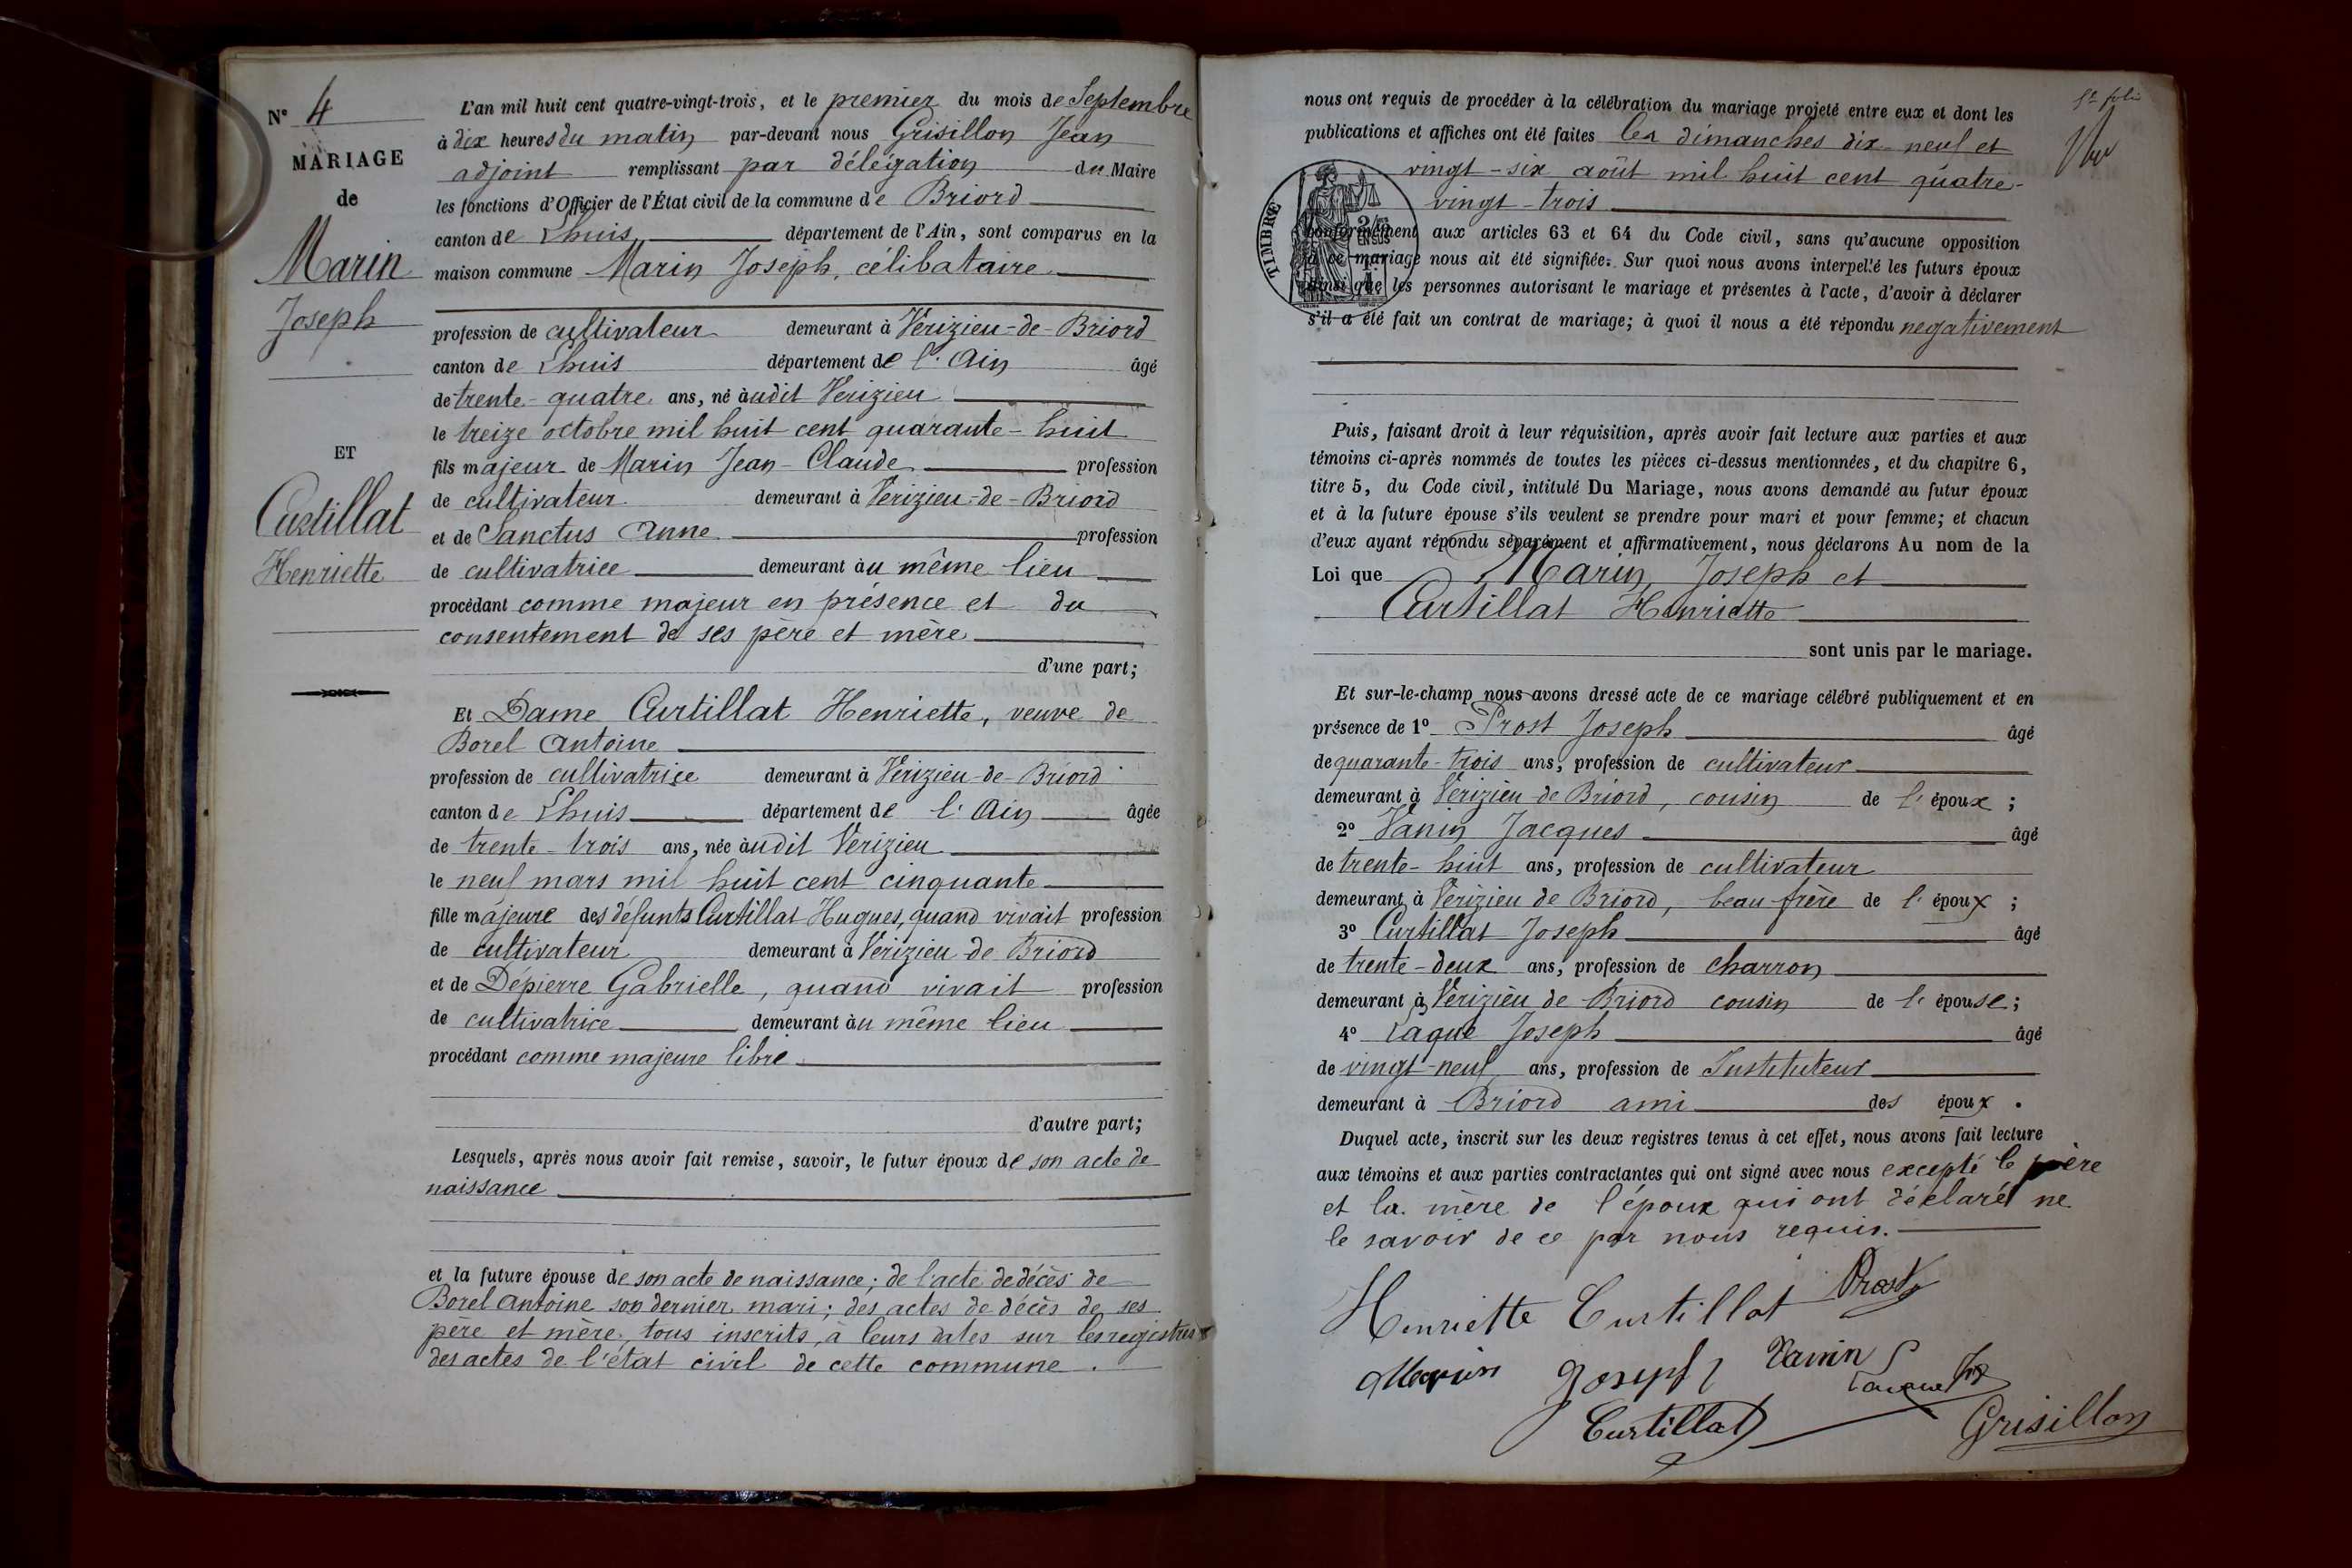 N° 4
MARIAGE
de
Marin
Joseph
ET
Curtillat
Henriette
L'an mil huit cent quatre-vingt-trois, et le premier du mois de Septembre
à dix heures du matin par-devant nous Grisillon Jean
adjoint remplissant par délégation du Maire
les fonctions d'Officier de l'État civil de la commune de Briord
canton de Lhuis département de l'Ain, sont comparus en la
maison commune Marin Joseph, célibataire
profession de cultivateur demeurant à Vérizieu-de-Briord
canton de Lhuis département de l'Ain âgé
de trente-quatre ans, né audit Vérizieu
le treize octobre mil huit cent quarante-huit
fils majeur de Marin Jean-Claude profession
de cultivateur demeurant à Vérizieu-de-Briord
et de Sanctus Anne profession
de cultivatrice demeurant au même lieu
procédant comme majeur en présence et du
consentement de ses père et mère
d'une part;
Et Dame Curtillat Henriette, veuve de
Borel Antoine
profession de cultivatrice demeurant à Vérizieu-de-Briord
canton de Lhuis département de l'Ain âgée
de trente-trois ans, née audit Vérizieu
le neuf mars mil huit cent cinquante
fille majeure des défunts Curtillat Hugues, quand vivait profession
de cultivateur demeurant à Vérizieu-de-Briord
et de Dépierre Gabrielle, quand vivait profession
de cultivatrice demeurant au même lieu
procédant comme majeure libre
d'autre part;
Lesquels, après nous avoir fait remise, savoir, le futur époux de son acte de
naissance
et la future épouse de son acte de naissance; de l'acte de décès de
Borel Antoine son dernier mari; des actes de décès de ses
père et mère, tous inscrits à leurs dates sur les registres
des actes de l'état civil de cette commune.
nous ont requis de procéder à la célébration du mariage projeté entre eux et dont les
publications et affiches ont été faites les dimanches dix-neuf et
vingt-six août mil huit cent quatre-
vingt-trois
TIMBRE
conformément aux articles 63 et 64 du Code civil, sans qu'aucune opposition
à ce mariage nous ait été signifiée. Sur quoi nous avons interpellé les futurs époux
ainsi que les personnes autorisant le mariage et présentes à l'acte, d'avoir à déclarer
s'il a été fait un contrat de mariage; à quoi il nous a été répondu negativement
Puis, faisant droit à leur réquisition, après avoir fait lecture aux parties et aux
témoins ci-après nommés de toutes les pièces ci-dessus mentionnées, et du chapitre 6,
titre 5, du Code civil, intitulé Du Mariage, nous avons demandé au futur époux
et à la future épouse s'ils veulent se prendre pour mari et pour femme; et chacun
d'eux ayant répondu séparément et affirmativement, nous déclarons Au nom de la
Loi que Marin Joseph et
Curtillat Henriette
sont unis par le mariage.
Et sur-le-champ nous avons dressé acte de ce mariage célébré publiquement et en
présence de 1° Prost Joseph âgé
de quarante-trois ans, profession de cultivateur
demeurant à Vérizieu de Briord, cousin de l'époux;
2° Vanin Jacques âgé
de trente-huit ans, profession de cultivateur
demeurant à Vérizieu de Briord, beau frère de l'époux;
3° Curtillat Joseph âgé
de trente-deux ans, profession de charron
demeurant à Vérizieu de Briord cousin de l'épouse;
4° Laque Joseph âgé
de vingt-neuf ans, profession de Instituteur
demeurant à Briord ami des époux.
Duquel acte, inscrit sur les deux registres tenus à cet effet, nous avons fait lecture
aux témoins et aux parties contractantes qui ont signé avec nous excepté le père
et la mère de l'époux qui ont déclaré ne
le savoir de ce par nous requis.
Henriette Curtillat Prost
Marin Joseph Vanin
Curtillat
Grisillon